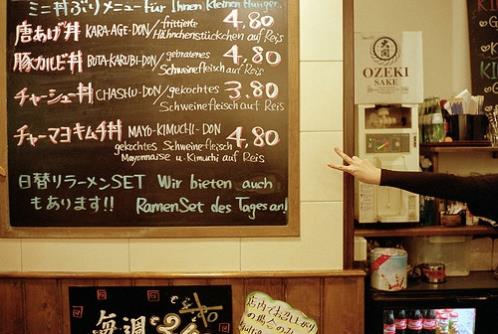 ミニ丼ぶりメニュー Für Ihnen Kleinen Hunger.
唐あげ丼 KARA-AGE-DON/frittierte Hähnchenstückchen auf Reis 4,80
豚カルビ丼 BUTA-KARUBI-DON/gebratenes Schweinefleisch auf Reis 4,80
チャーシュー丼 CHASHU-DON/gekochtes Schweinefleisch auf Reis 3.80
チャーマヨキムチ丼 MAYO-KIMUCHI-DON 4,80
gekochtes Schweinefleisch
Mayonnaise u. Kimuchi auf Reis
日替りラーメンSET Wir bieten auch
もあります!! RamenSet des Tages an!
大関
OZEKI
SAKE
毎週
店内でお召し上がり
の場合のみ